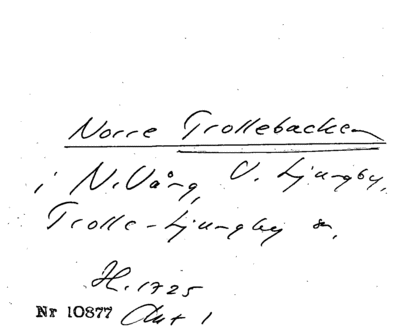 Norre Trollebacken
i N. Vång, V. Ljungby,
Trolle-Ljungby sn,
H. 1725
Nr 10877 Aut 1